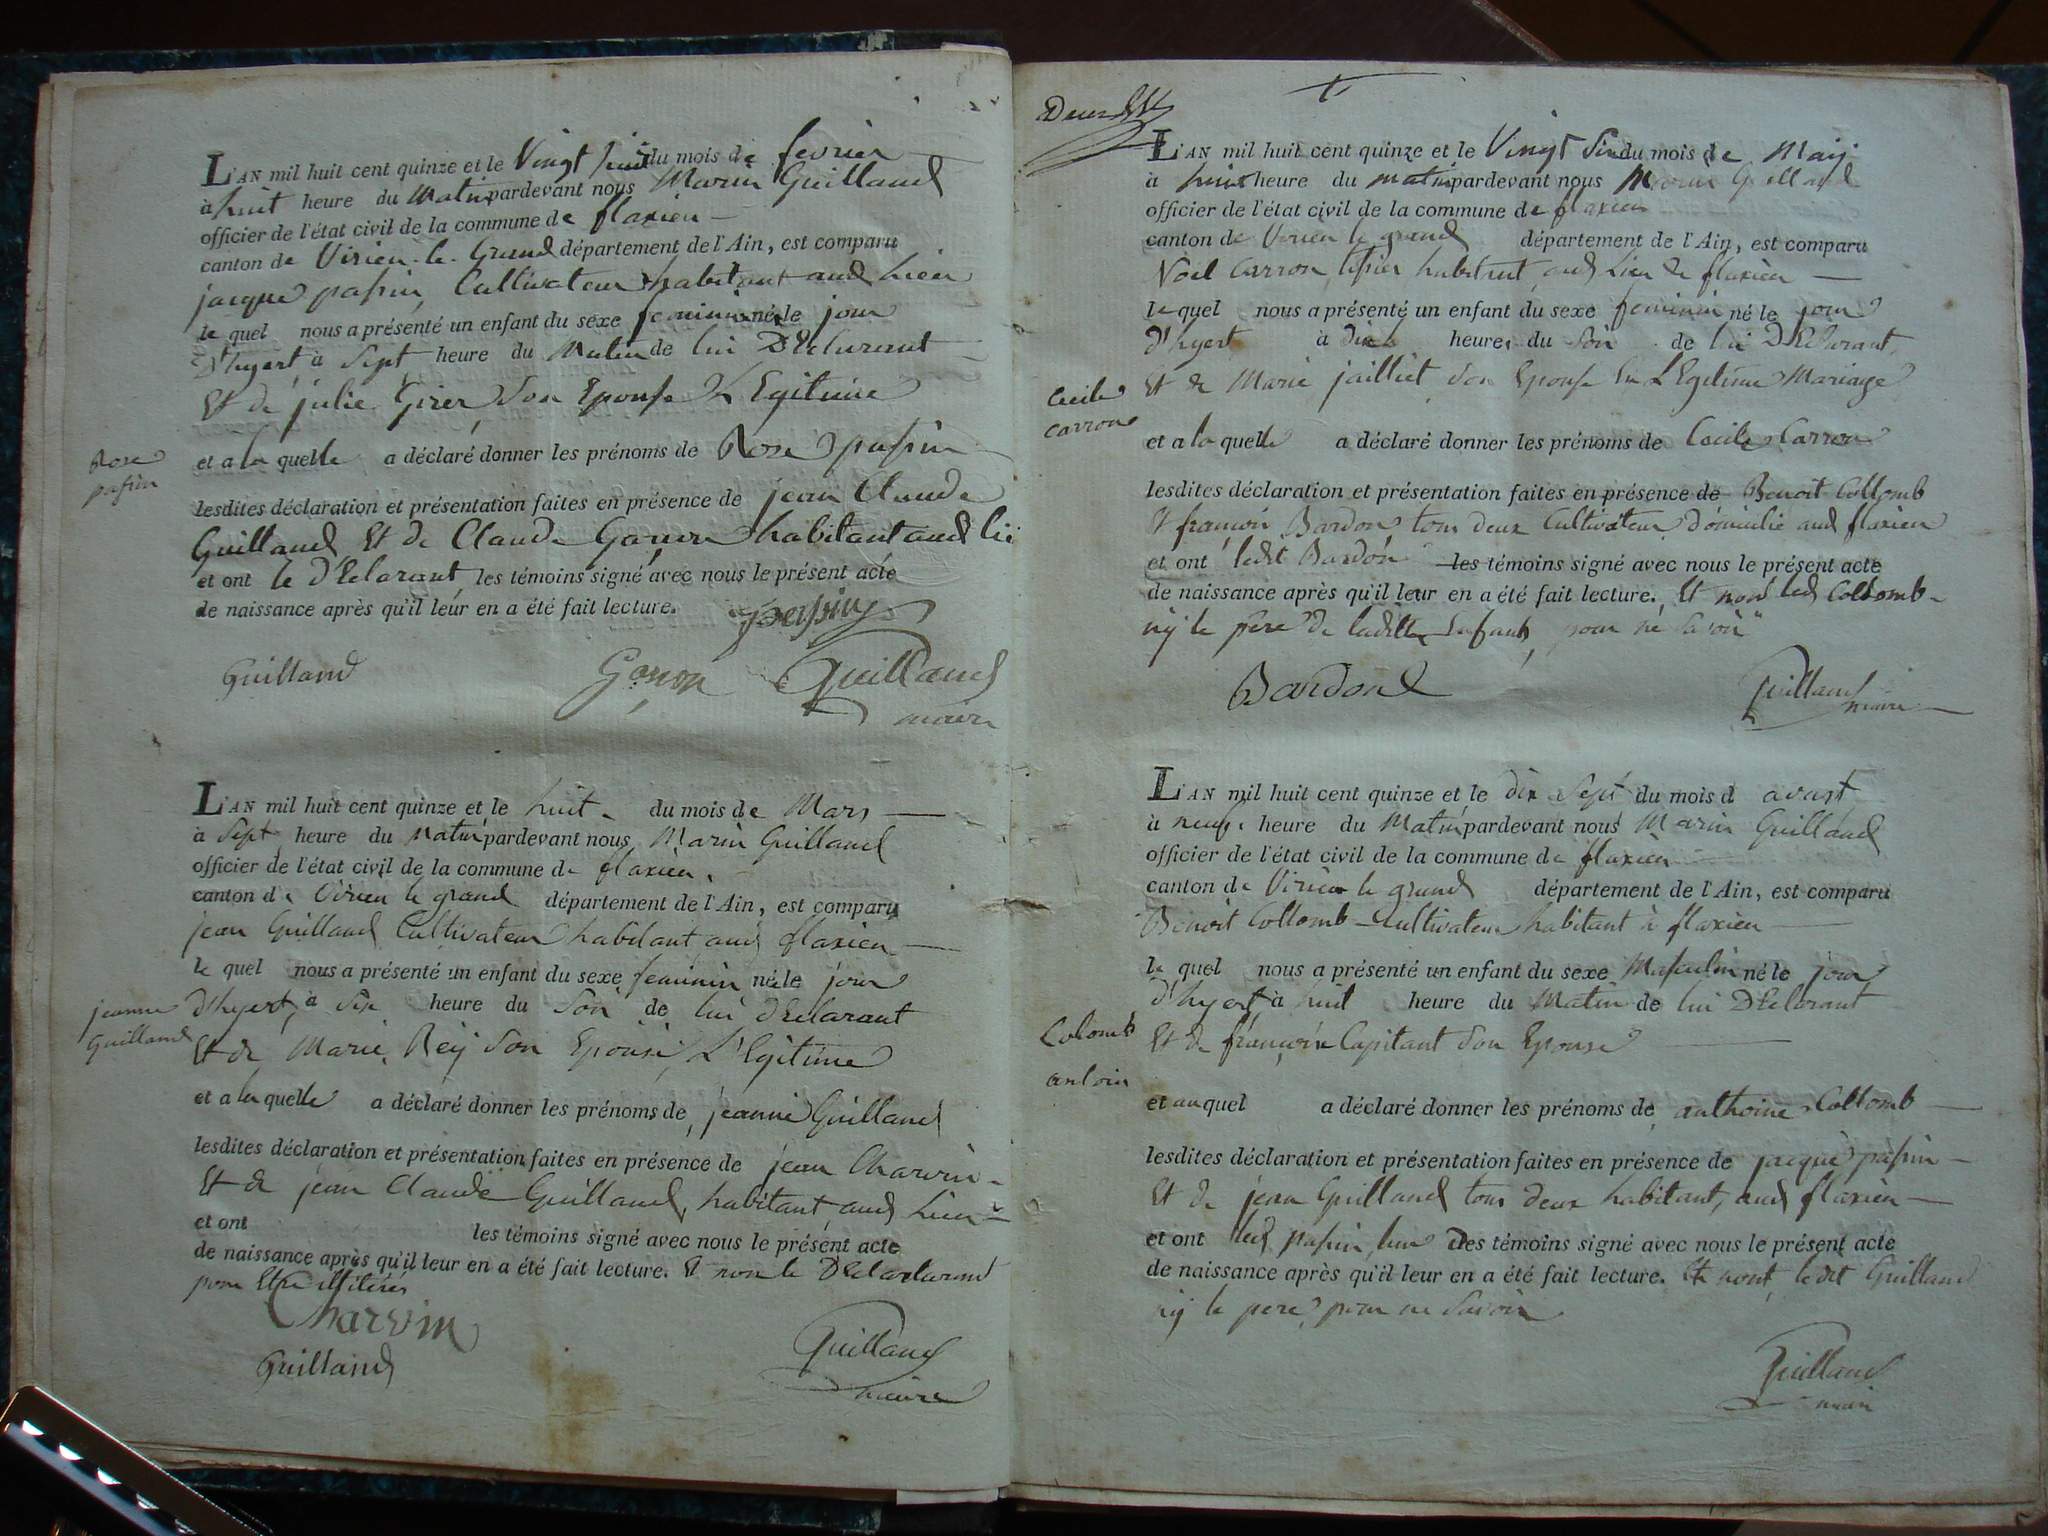 L'AN mil huit cent quinze et le Vingt huit du mois de fevrier
à huit heure du Matin pardevant nous Marin Guilland
officier de l'état civil de la commune de flaxieu
canton de Virieu-le-Grand département de l'Ain, est comparu
jacque passin Cultivateur habitant aud Lieu
le quel nous a présenté un enfant du sexe feminin né le jour
D'hyert à Sept heure du Matin de lui D'Eclarant
Et de julie Girer Son Epouse L'Egitime
Rose
passin
et a la quelle a déclaré donner les prénoms de Rose passin
lesdites déclaration et présentation faites en présence de jean Claude
Guilland Et de Claude Gonon habitant aud lie
et ont le D'Eclarant les témoins signé avec nous le présent acte
de naissance après qu'il leur en a été fait lecture. passin
Guilland Gonon Guilland
maire
L'AN mil huit cent quinze et le huit du mois de Mars
à Sept heure du Matin pardevant nous Marin Guilland
officier de l'état civil de la commune de flaxieu
canton de Virieu le grand département de l'Ain, est comparu
jean Guilland Cultivateur habitant aud flaxieu
le quel nous a présenté un enfant du sexe feminin né le jour
jeanne
Guilland
D'hyert à Six heure du Soir de lui D'Eclarant
Et de Marie Reÿ Son Epouse L'Egitime
et a la quelle a déclaré donner les prénoms de jeanne Guilland
lesdites déclaration et présentation faites en présence de jean Charvin
Et de jean Claude Guilland habitant aud Lieu
et ont les témoins signé avec nous le présent acte
de naissance après qu'il leur en a été fait lecture. Et non le
pour Etre illiterés
Charvin
Guilland Guilland
maire
L'AN mil huit cent quinze et le Vingt Six du mois de Maij
à huit heure du matin pardevant nous Marin Guilland
officier de l'état civil de la commune de flaxieu
canton de Virieu le grand département de l'Ain, est comparu
Noël Carron tissier habitant aud Lieu de flaxieu
le quel nous a présenté un enfant du sexe feminin né le jour
D'hyert à dix heures du Soir de lui D'Eclarant
Cecile
Carron
Et de Marie jailliet Son Epouse En L'Egitime Mariage
et a la quelle a déclaré donner les prénoms de Cecile Carron
lesdites déclaration et présentation faites en présence de Benoit Collomb
Et françois Bardon tous deux Cultivateur domicilié aud flaxieu
et ont ledit Bardon les témoins signé avec nous le présent acte
de naissance après qu'il leur en a été fait lecture. Et non led Collomb
nij le père de laditte Enfant, pour ne Savoir
Bardon Guilland
maire
L'AN mil huit cent quinze et le dix Sept du mois d avust
à neuf heure du Matin pardevant nous Marin Guilland
officier de l'état civil de la commune de flaxieu
canton de Virieu le grand département de l'Ain, est comparu
Benoit Collomb Cultivateur habitant à flaxieu
le quel nous a présenté un enfant du sexe Masculin né le jour
D'hyert à huit heure du Matin de lui D'Eclarant
Colomb
antoin
Et de françoise Capitant Son Epouse
et auquel a déclaré donner les prénoms de anthoine Collomb
lesdites déclaration et présentation faites en présence de jacque passin
Et de jean Guilland tous deux habitant aud flaxieu
et ont led passin lun Des témoins signé avec nous le présent acte
de naissance après qu'il leur en a été fait lecture. Et nont ledit Guilland
nij le pere pour ne Savoir
Guilland
maire